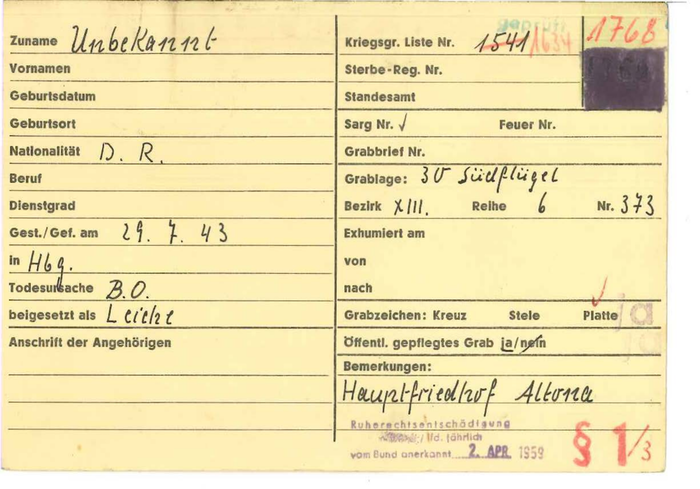 Zuname Unbekannt
Vornamen
Geburtsdatum
Geburtsort
Nationalität D. R.
Beruf
Dienstgrad
Gest./Gef. am 29. 7. 43
in Hbg.
Todesursache B.O.
beigesetzt als Leiche
Anschrift der Angehörigen
geprüft
Kriegsgr. Liste Nr. 1541 1634 1768
Sterbe-Reg. Nr.
Standesamt
Sarg Nr. √ Feuer Nr.
Grabbrief Nr.
Grablage: 30 Südflügel
Bezirk XIII. Reihe 6 Nr. 373
Exhumiert am
von
nach
Grabzeichen: Kreuz Stele Platte ja
Öffentl. gepflegtes Grab ja/nein ja
Bemerkungen:
Hauptfriedhof Altona
Ruherechtsentschädigung
lfd. jährlich
vom Bund anerkannt 2. APR 1959
§ 1/3